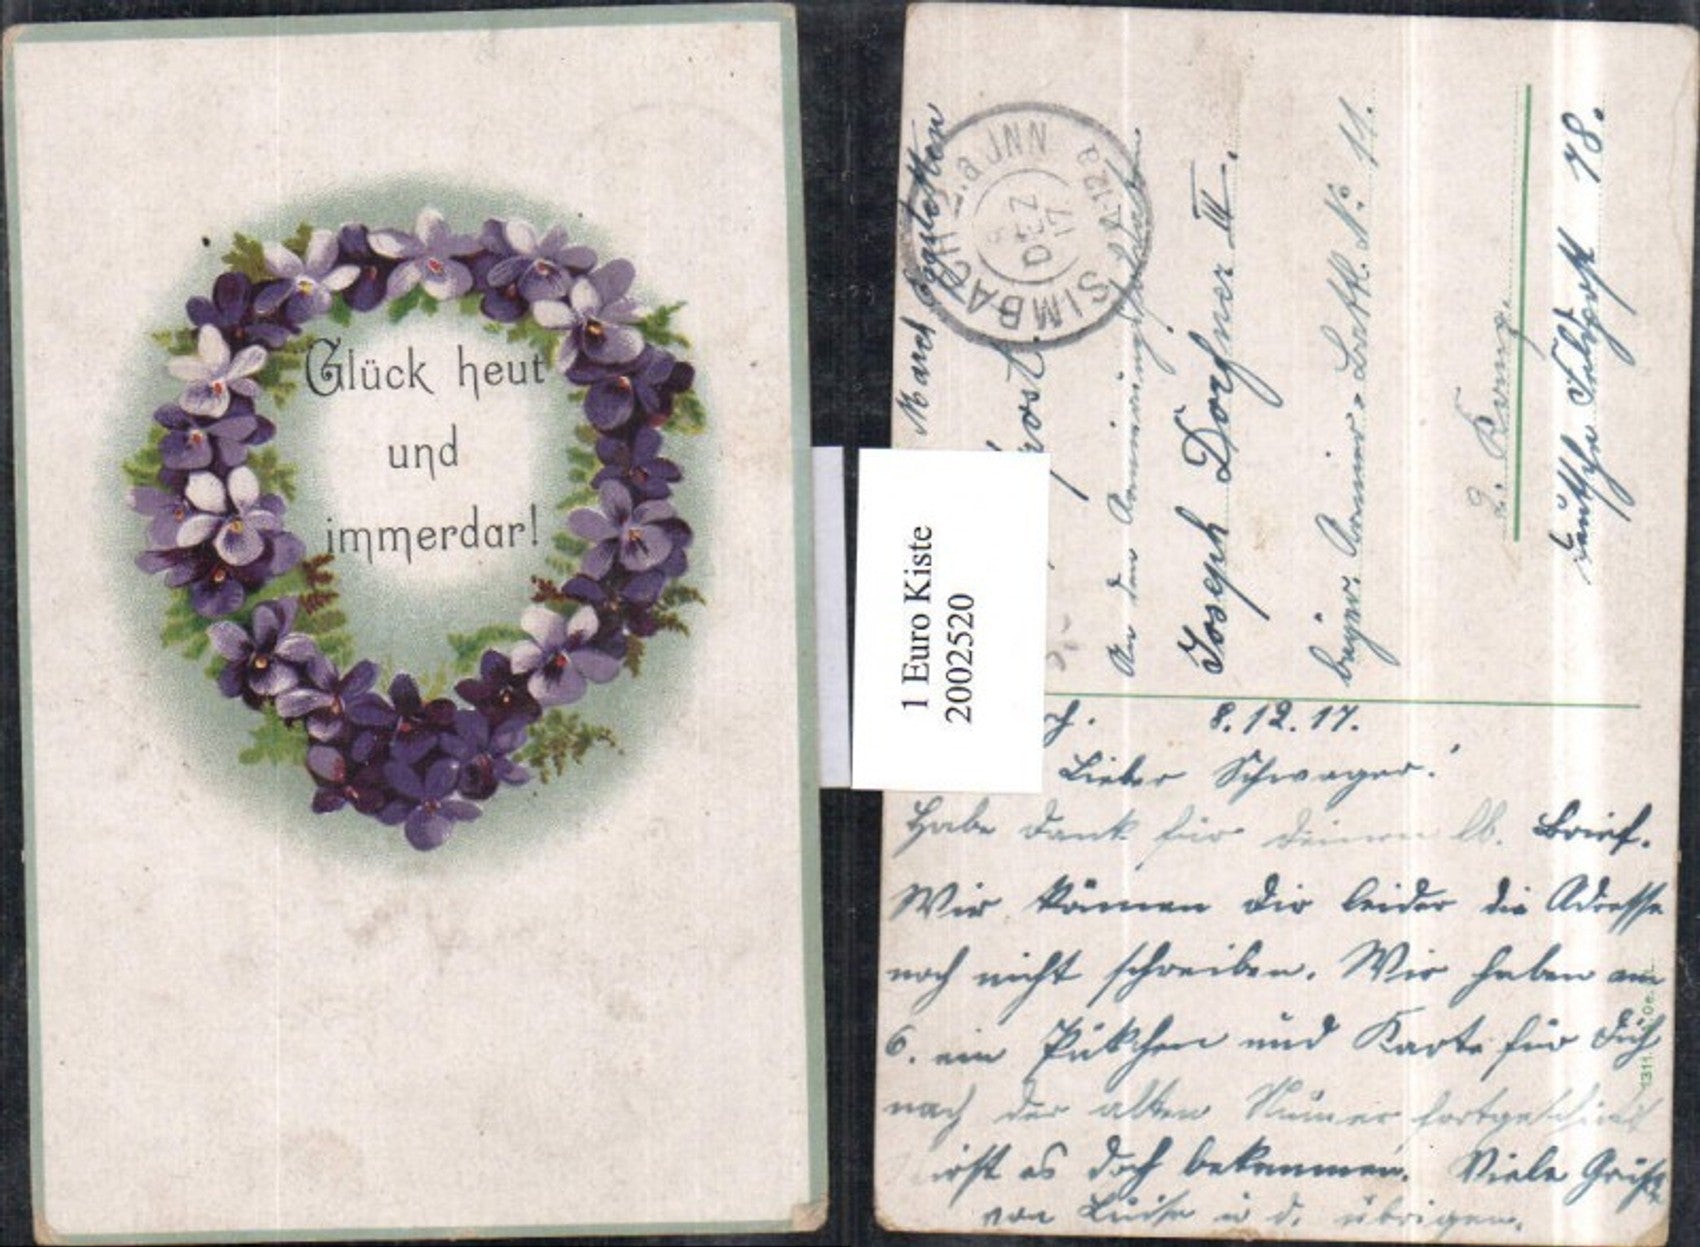 Glück heut
und
immerdar!
1 Euro Kiste
2002520
SIMBACH a. JNN
DEZ
17
An den Armierungssoldaten
Joseph Dorfner III.
bayer. Armier. Batkl. No. 11.
2. Komp.
Deutsche Feldpost 78.
8.12.17.
Lieber Schwager!
Habe Dank für deinen lb. Brief.
Wir können dir leider die Adresse
noch nicht schreiben. Wir haben am
6. ein Päckchen und Karte für Dich
nach der alten Numer fortgeschickt
wirst es doch bekommen. Viele Grüße
von Luise u d. übrigen.
1311